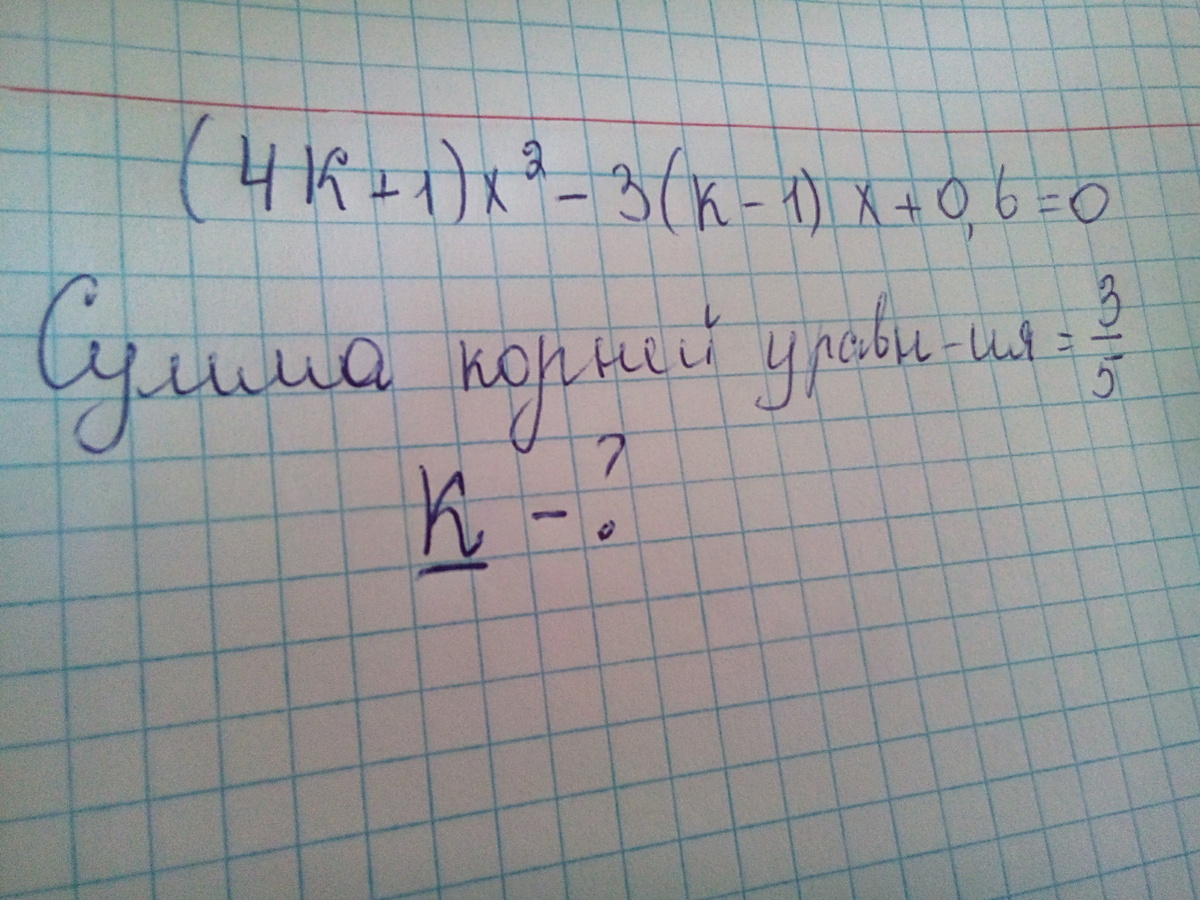 (4К+1)x² - 3(к-1) x + 0,6 = 0
Сумма корней уравн-ия = 3/5
К - ?